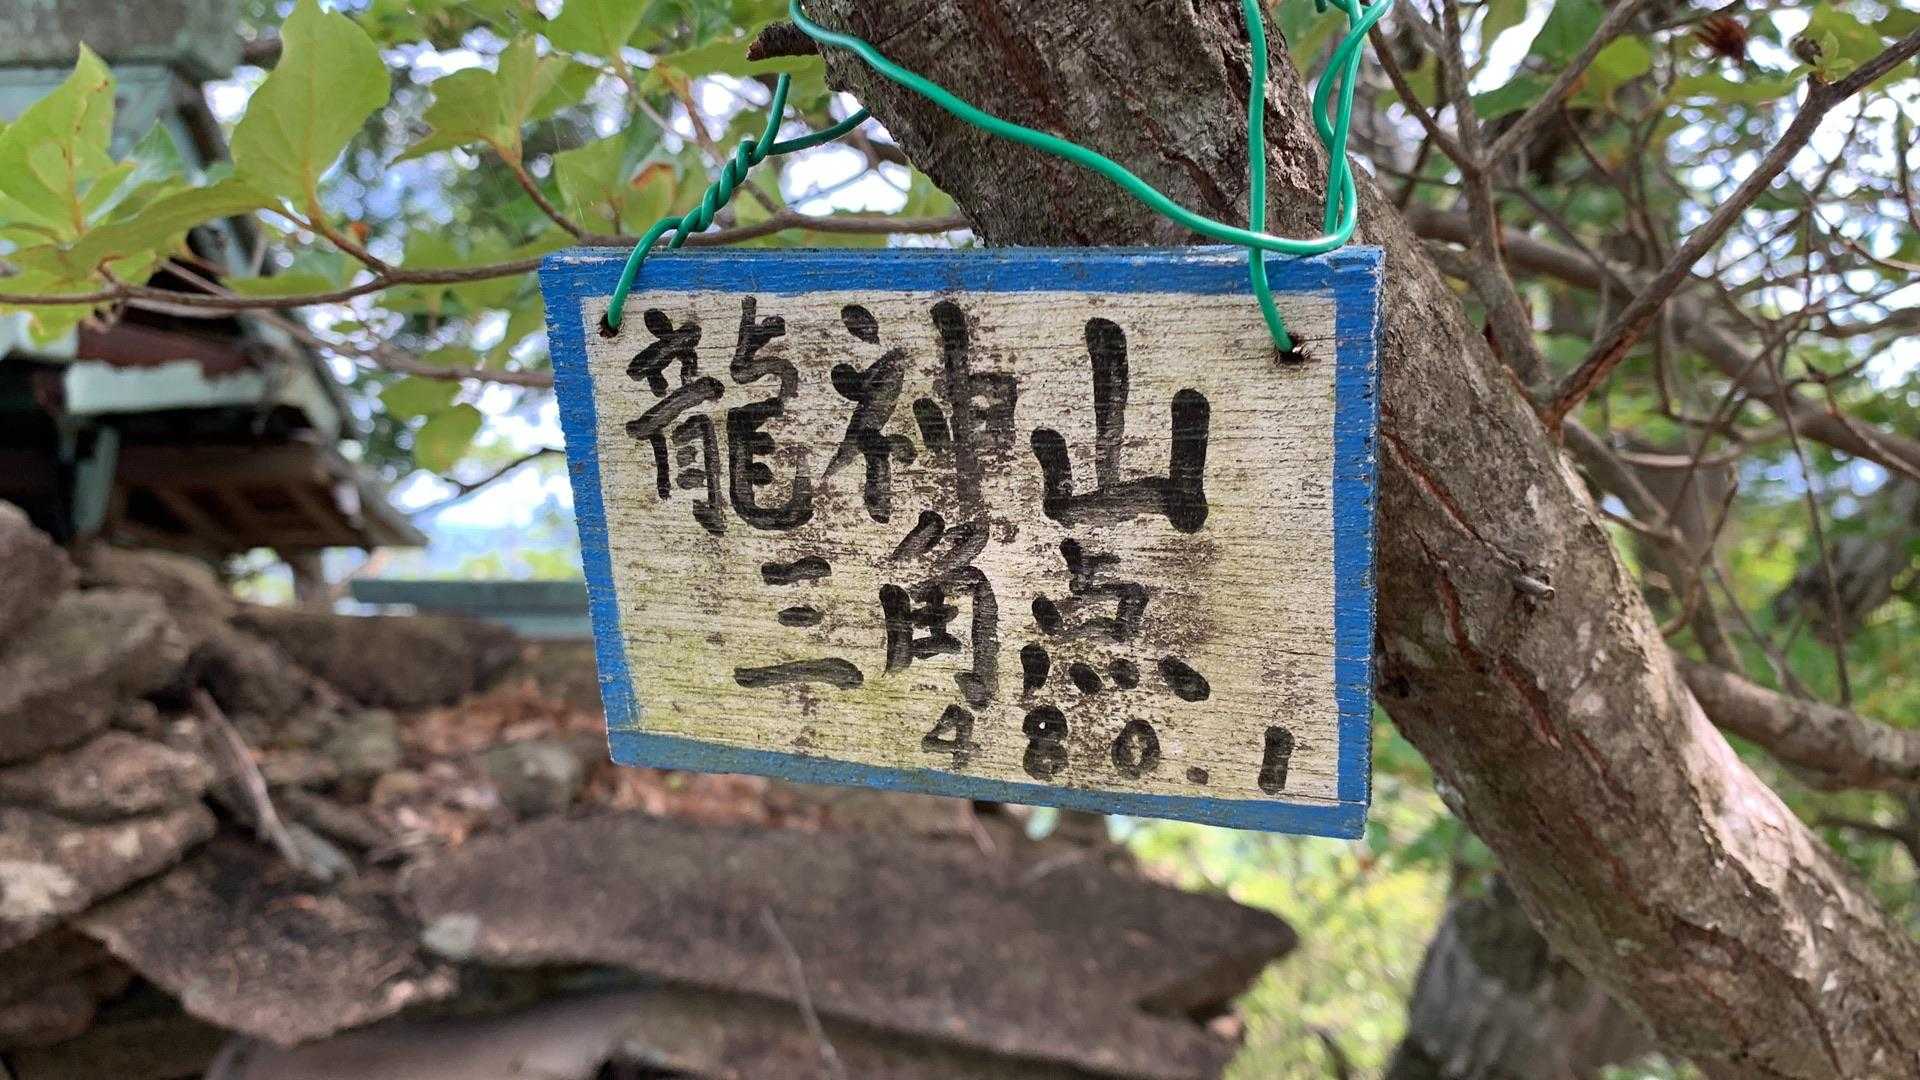 龍神山
三角点
480.1